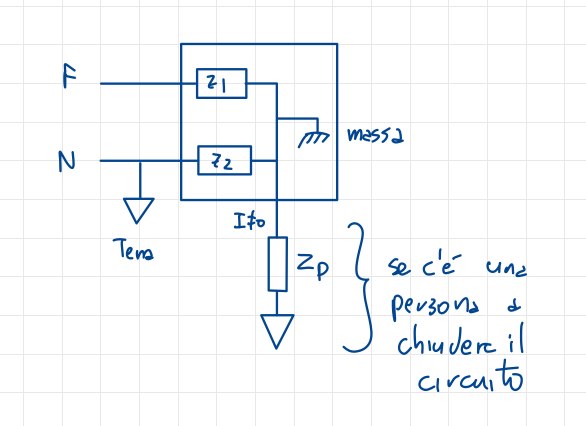 F
Z1
massa
N
Z2
Terra
I≠0
Zp
se c'é una
persona a
chiudere il
circuito